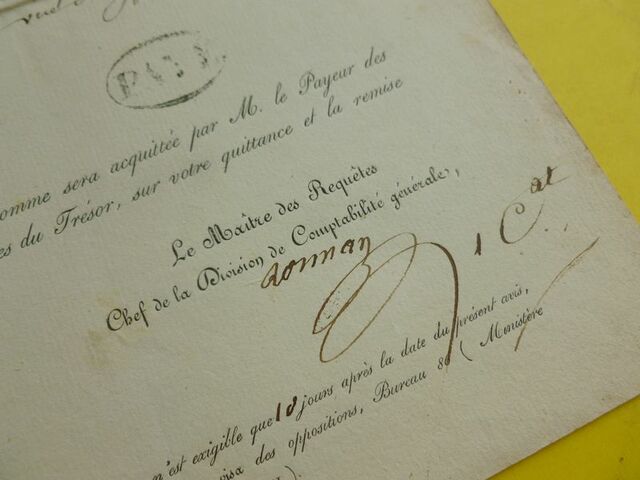 omme sera acquittée par M. le Payeur des
es du Trésor, sur votre quittance et la remise
Le Maître des Requêtes
Chef de la Division de Comptabilité générale,
n'est exigible que 10 jours après la date du présent avis,
visa des oppositions, Bureau 8 (Ministère
).